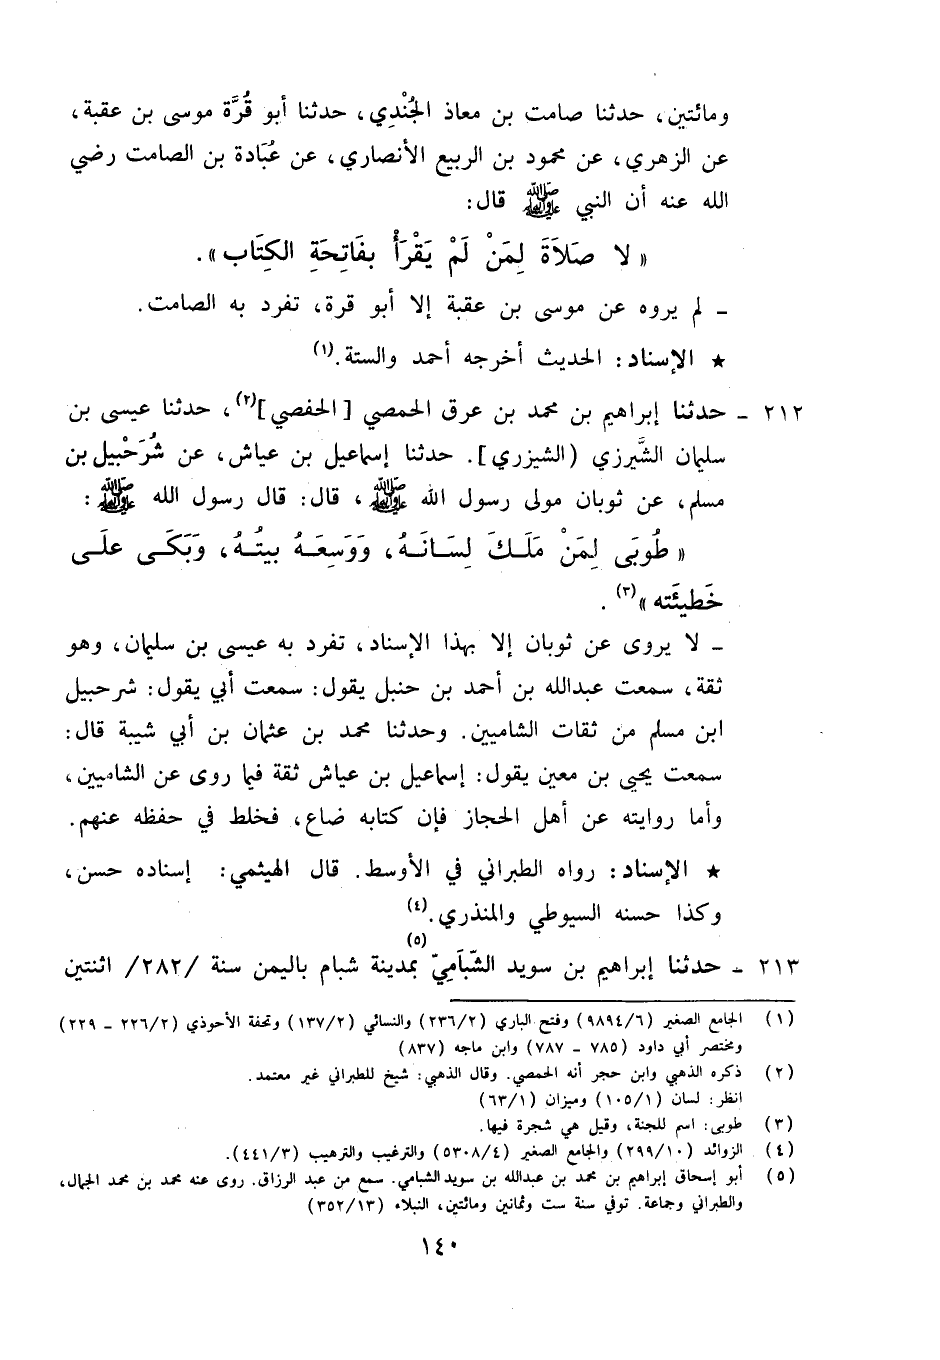 ومائتين، حدثنا صامت بن معاذ الجُنْدِي، حدثنا أبو قُرَّة موسى بن عقبة،
عن الزهري، عن محمود بن الربيع الأنصاري، عن عُبَادة بن الصامت رضي
الله عنه أن النبي ﷺ قال:
« لا صَلاَةَ لِمَنْ لَمْ يَقْرَأْ بفَاتِحَةِ الكِتَاب».
ـ لم يروه عن موسى بن عقبة إلا أبو قرة، تفرد به الصامت.
★ الإسناد: الحديث أخرجه أحمد والستة.(١)
٢١٢ ـ حدثنا إبراهيم بن محمد بن عرق الحمصي [الحفصي](٢)، حدثنا عيسى بن
سليمان الشَّيرزي (الشيزري]. حدثنا إسماعيل بن عياش، عن شُرَحْبيل بن
مسلم، عن ثوبان مولى رسول الله ﷺ، قال: قال رسول الله ﷺ:
« طُوبَى لِمَنْ مَلَـكَ لِسَـانَـهُ، وَوَسِعَـهُ بيتُـهُ، وَبَكَـى علَـى
خَطيئَته»(٣).
ـ لا يروى عن ثوبان إلا بهذا الإسناد، تفرد به عيسى بن سليمان، وهو
ثقة، سمعت عبدالله بن أحمد بن حنبل يقول: سمعت أبي يقول: شرحبيل
ابن مسلم من ثقات الشاميين. وحدثنا محمد بن عثمان بن أبي شيبة قال:
سمعت يحيى بن معين يقول: إسماعيل بن عياش ثقة فيما روى عن الشاميين،
وأما روايته عن أهل الحجاز فإن كتابه ضاع، فخلط في حفظه عنهم.
★ الإسناد: رواه الطبراني في الأوسط. قال الهيثمي: إسناده حسن،
وكذا حسنه السيوطي والمنذري.(٤)
٢١٣ ـ حدثنا إبراهيم بن سويد الشّبَامِيّ(٥) بمدينة شبام باليمن سنة /٢٨٢/ اثنتين
(١) الجامع الصغير (٩٨٩٤/٦) وفتح الباري (٢٣٦/٢) والنسائي (١٣٧/٢) وتحفة الأحوذي (٢٢٦/٢ ـ ٢٢٩)
ومختصر أبي داود (٧٨٥ ـ ٧٨٧) وابن ماجه (٨٣٧)
(٢) ذكره الذهبي وابن حجر أنه الحمصي. وقال الذهبي: شيخ للطبراني غير معتمد.
انظر: لسان (١٠٥/١) وميزان (٦٣/١)
(٣) طوبى: اسم للجنة، وقيل هي شجرة فيها.
(٤) الزوائد (٢٩٩/١٠) والجامع الصغير (٥٣٠٨/٤) والترغيب والترهيب (٤٤١/٣).
(٥) أبو إسحاق إبراهيم بن محمد بن عبدالله بن سويد الشبامي. سمع من عبد الرزاق. روى عنه محمد بن محمد الجمال،
والطبراني وجماعة. توفي سنة ست وثمانين ومائتين، النبلاء (٣٥٢/١٣)
١٤٠